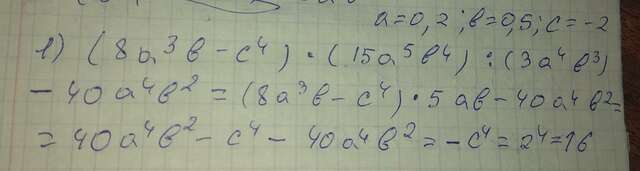 a=0,2; в=0,5; c=-2
1) (8a³в - c⁴) · (15a⁵в⁴) : (3a⁴в³)
- 40a⁴в² = (8a³в - c⁴) · 5aв - 40a⁴в² =
= 40a⁴в² - c⁴ - 40a⁴в² = -c⁴ = 2⁴ = 16